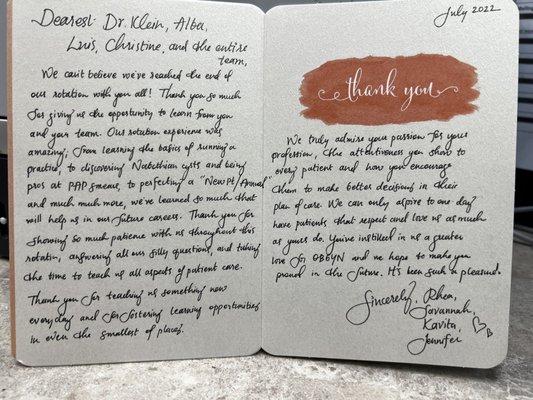 Dearest Dr. Klein, Alba,
Luis, Christine, and the entire
team,
We can't believe we've reached the end of
our rotation with you all! Thank you so much
for giving us the opportunity to learn from you
and your team. Our rotation experience was
amazing; from learning the basics of running a
practice, to discovering Nabothian cysts and being
pros at PAP smears, to perfecting a "New Pt/Annual"
and much much more, we've learned so much that
will help us in our future careers. Thank you for
showing so much patience with us throughout this
rotation, answering all our silly questions, and taking
the time to teach us all aspects of patient care.
Thank you for teaching us something new
everyday and for fostering learning opportunities
in even the smallest of places.
July 2022
thank you
We truly admire your passion for your
profession, the attentiveness you show to
every patient and how you encourage
them to make better decisions in their
plan of care. We can only aspire to one day
have patients that respect and love us as much
as yours do. You've instilled in us a greater
love for OBGYN and we hope to make you
proud in the future. It's been such a pleasure.
Sincerely, Rhea,
Savannah,
Kavita,
Jennifer